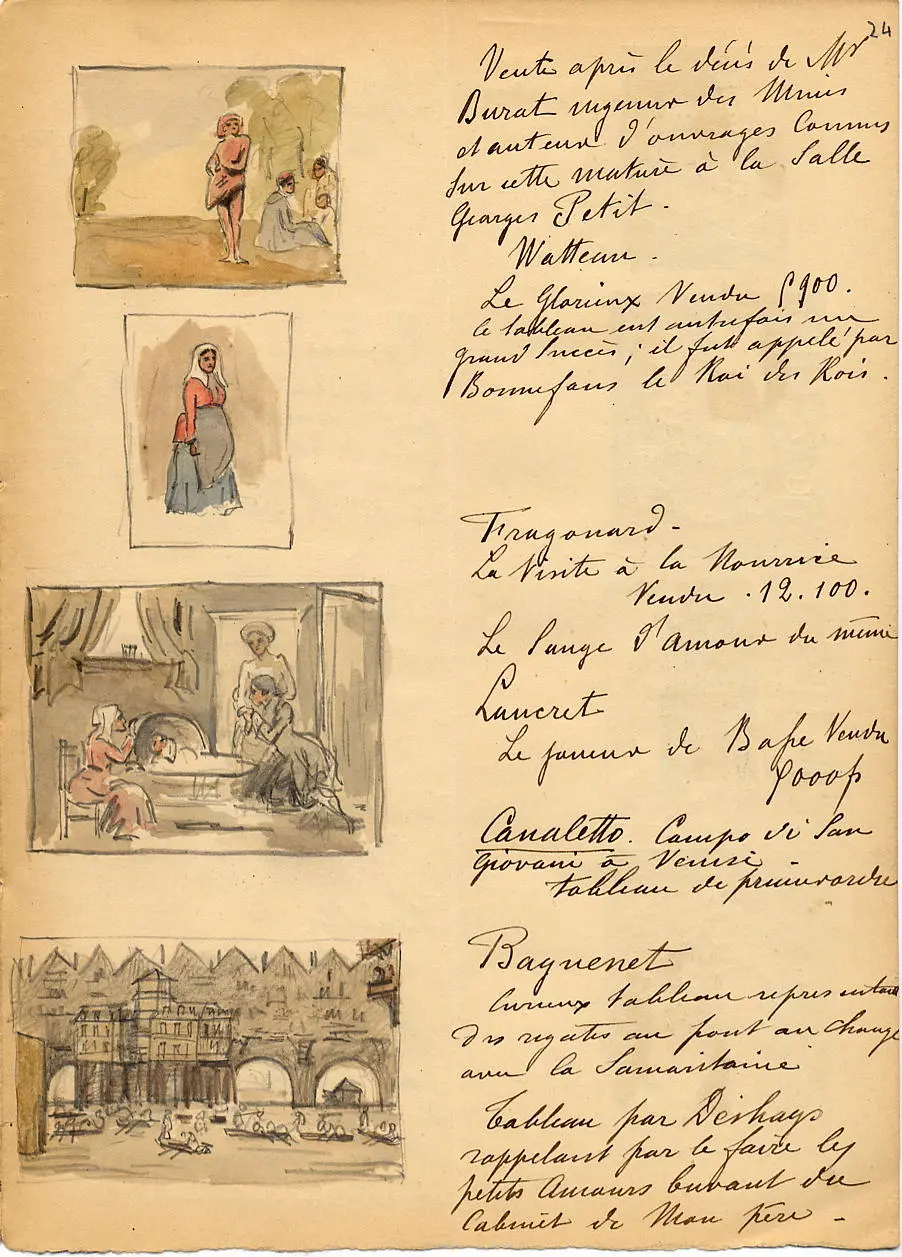 24
Vente après le décès de Mr
Burat ingenieur des Mines
et auteur d'ouvrages Connus
Sur cette matière à la Salle
Georges Petit.
Watteau.
Le Glorieux Vendu 5900.
Ce tableau eut autrefois un
grand Succès; il fut appelé par
Bonnefans le Roi des Rois.
Fragonard-
La Visite à la Nourrice
Vendu. 12.100.
Le Songe d'amour du même
Lancret
Le joueur de Basse Vendu
5000f
Canaletto. Campo di San
Giovani à Venise -
tableau de premier ordre
Raguenet
Curieux tableau representant
des regates au pont au Change
avec la Samaritaine
Tableau par Deshays
rappelant par le faire les
petits Amours buvant du
Cabinet de Mon père -